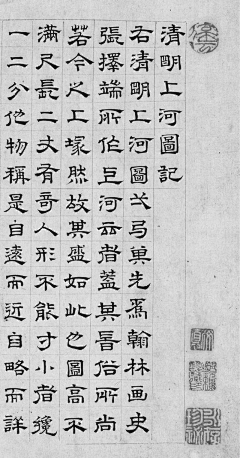 清明上河圖記
右清明上河圖弌弓先爲翰林画史
張擇端所作上河云者蓋其旹俗所尚
若今之上塚然故其盛如此也圖高不
滿尺長二丈有奇人形不能寸小者纔
一二分他物稱是自遠而近自略而詳